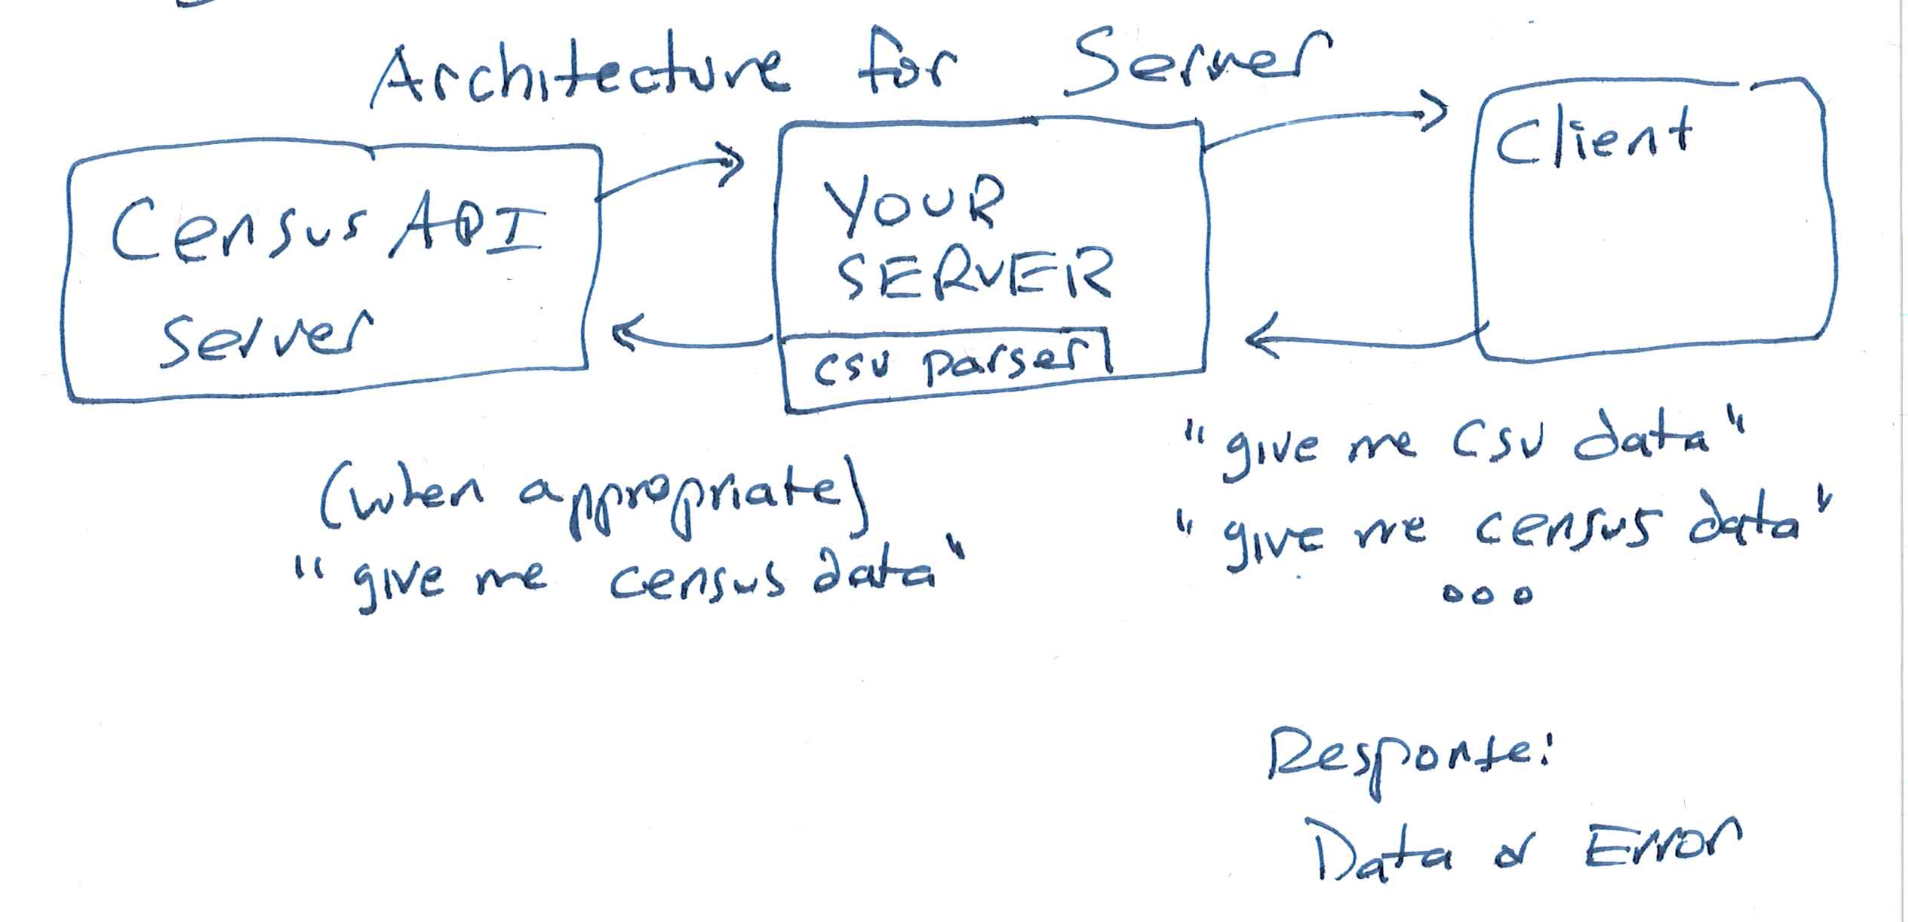 Architecture for Server
Census API
server
YOUR
SERVER
csv parser
Client
(when appropriate)
"give me census data"
"give me csv data"
"give me census data"
ooo
Response:
Data or Error